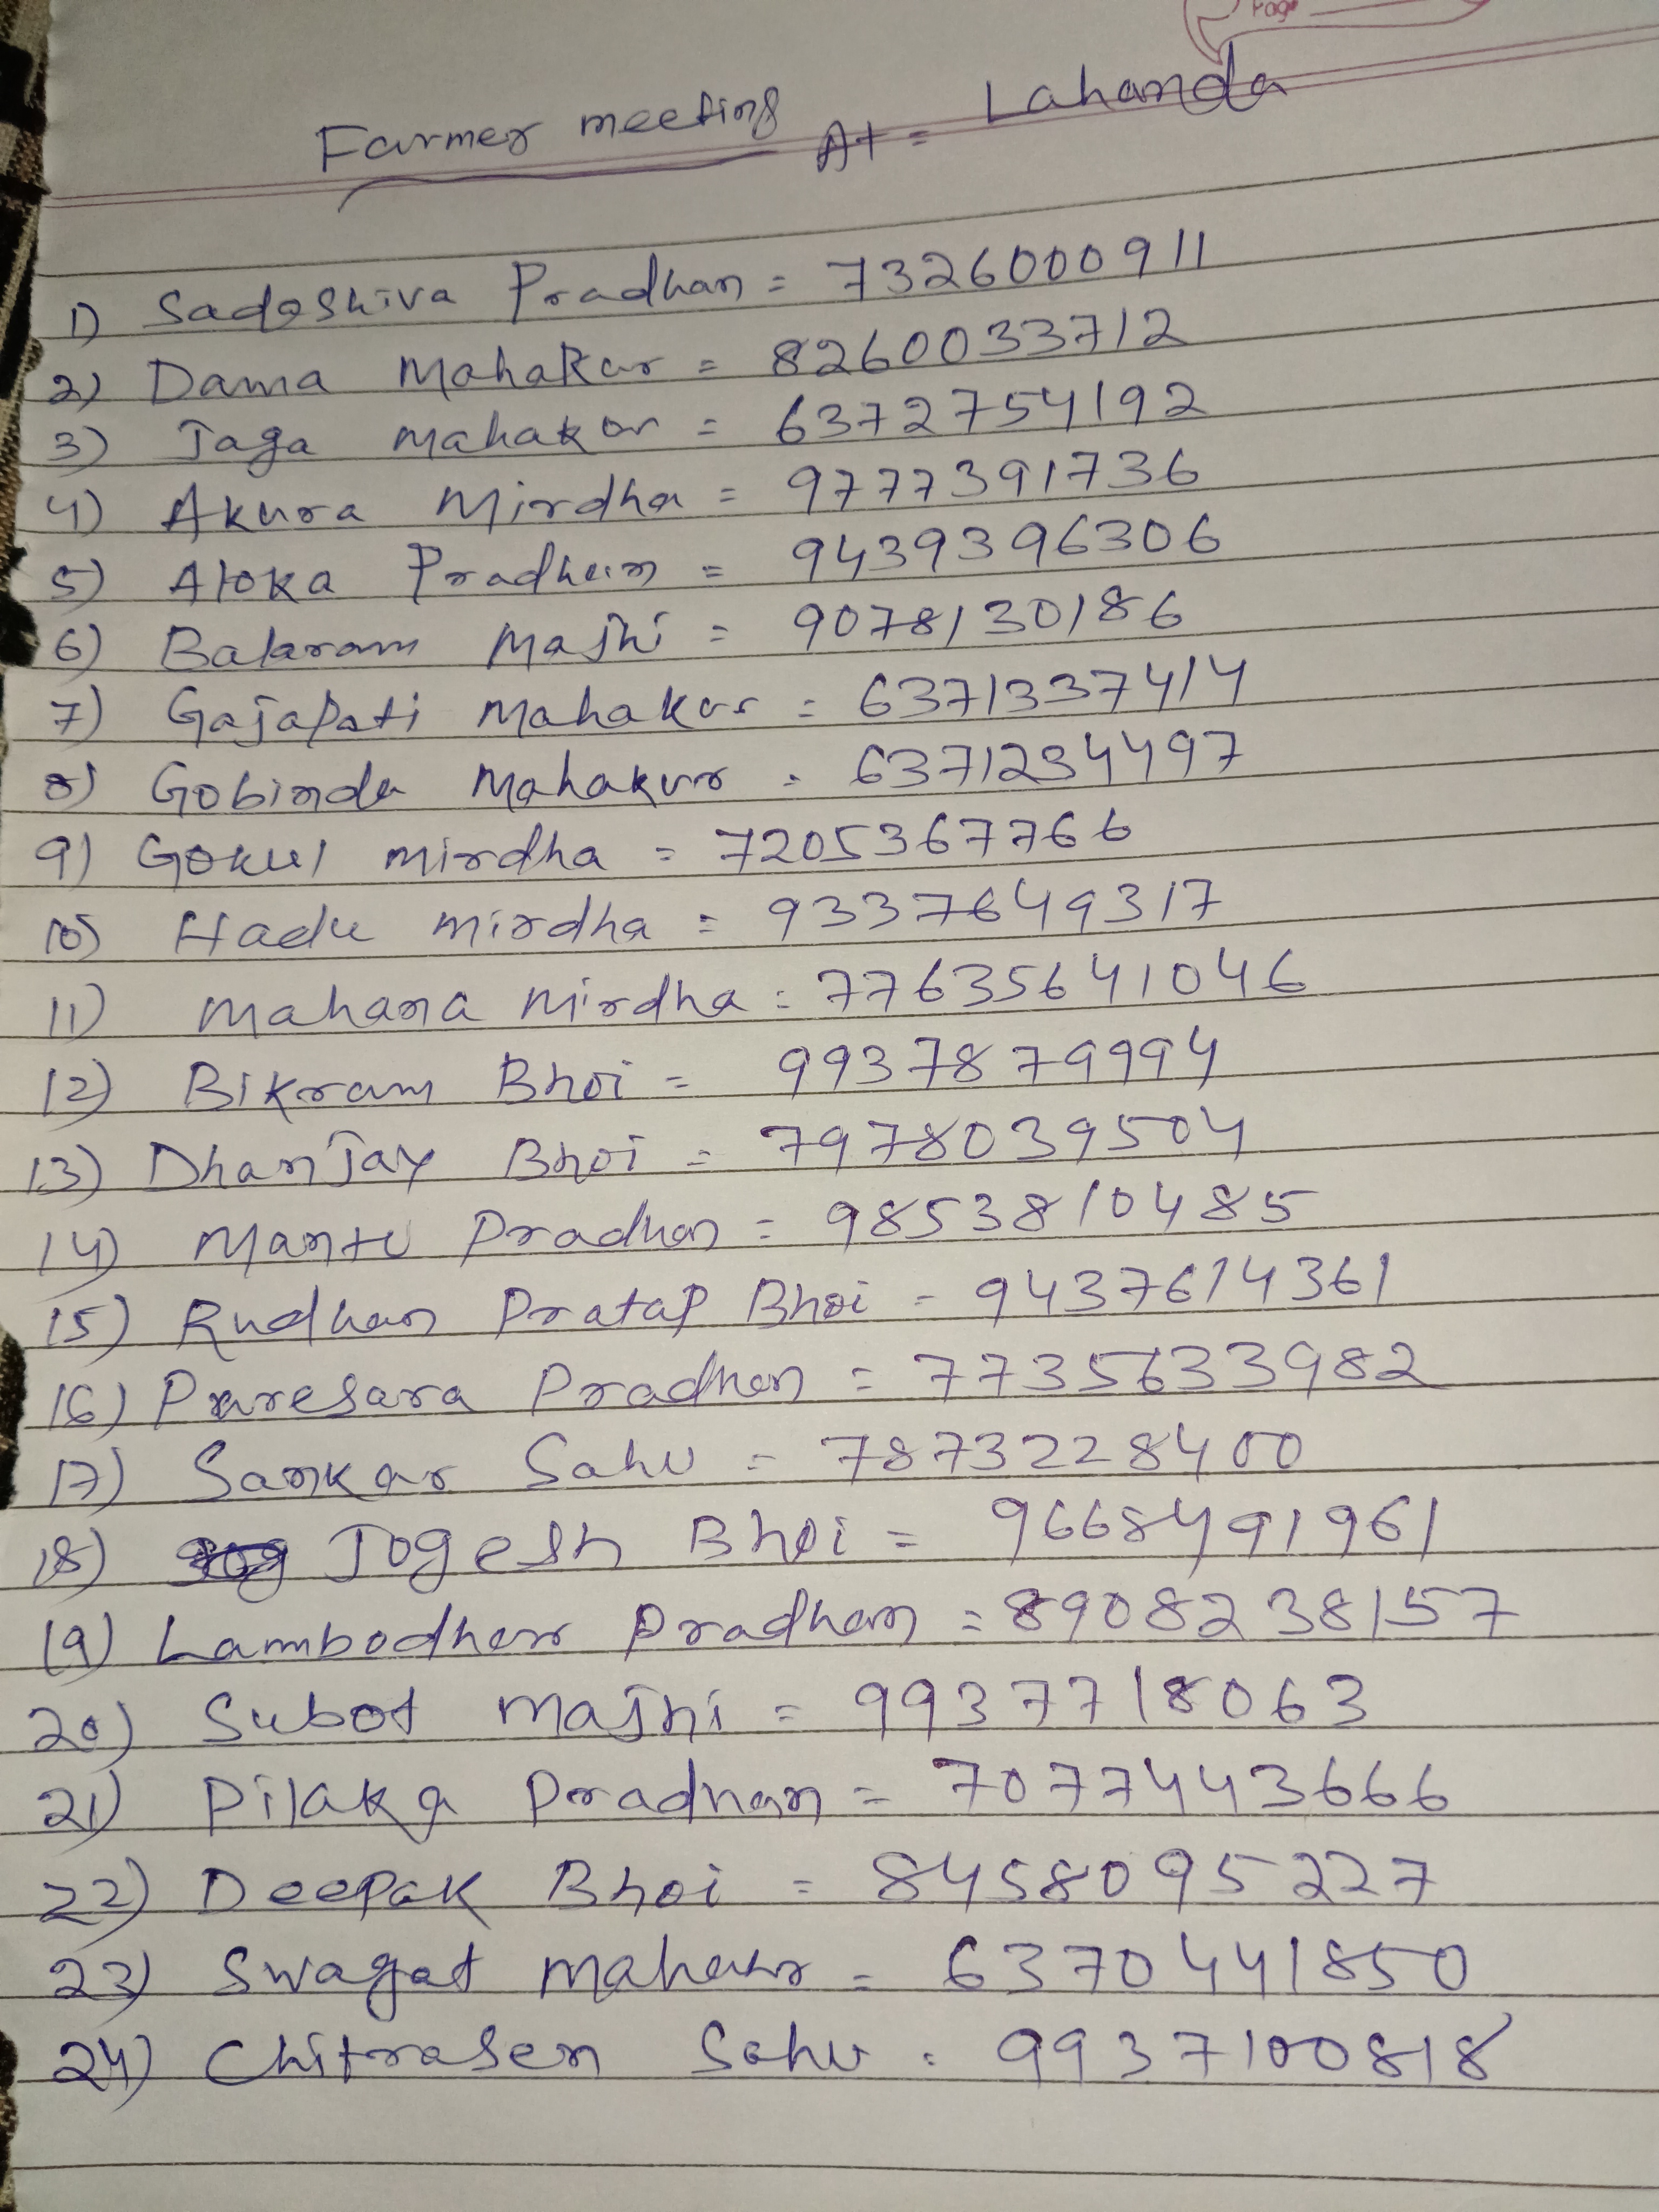 Page
Farmer meeting At = Lahanda
1) Sadashiva Pradhan = 7326000911
2) Dama Mahakur = 8260033712
3) Jaga Mahakur = 6372754192
4) Akura Mirdha = 9777391736
5) Aloka Pradhan = 9439396306
6) Balaram Majhi = 9078130186
7) Gajapati Mahakur = 6371337414
8) Gobinda Mahakur = 6371234497
9) Gokul Mirdha = 7205367766
10) Hadu Mirdha = 9337649317
11) Mahana Mirdha = 77635641046
12) Bikram Bhoi = 9937879994
13) Dhanjay Bhoi = 7978039504
14) Mantu Pradhan = 9853810485
15) Rudhan Pratap Bhoi = 9437614361
16) Paresara Pradhan = 7735633982
17) Sankar Sahu = 7873228400
18) Jogesh Bhoi = 9668491961
19) Lambodhar Pradhan = 8908238157
20) Subot Majhi = 9937718063
21) Pilaka Pradhan = 7077443666
22) Deepak Bhoi = 8458095227
23) Swagat = 6370441850
24) Chitrasen Sahu = 9937100818